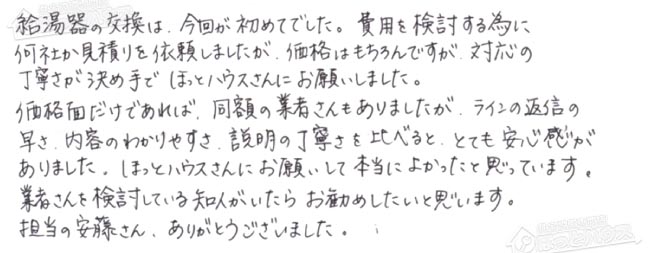 給湯器の交換は、今回が初めてでした。費用を検討する為に
何社か見積りを依頼しましたが、価格はもちろんですが、対応の
丁寧さが決め手でほっとハウスさんにお願いしました。
価格面だけであれば、同額の業者さんもありましたが、ラインの返信の
早さ、内容のわかりやすさ、説明の丁寧さを比べると、とても安心感が
ありました。ほっとハウスさんにお願いして本当によかったと思っています。
業者さんを検討している知人がいたらお勧めしたいと思います。
担当の安藤さん、ありがとうございました。